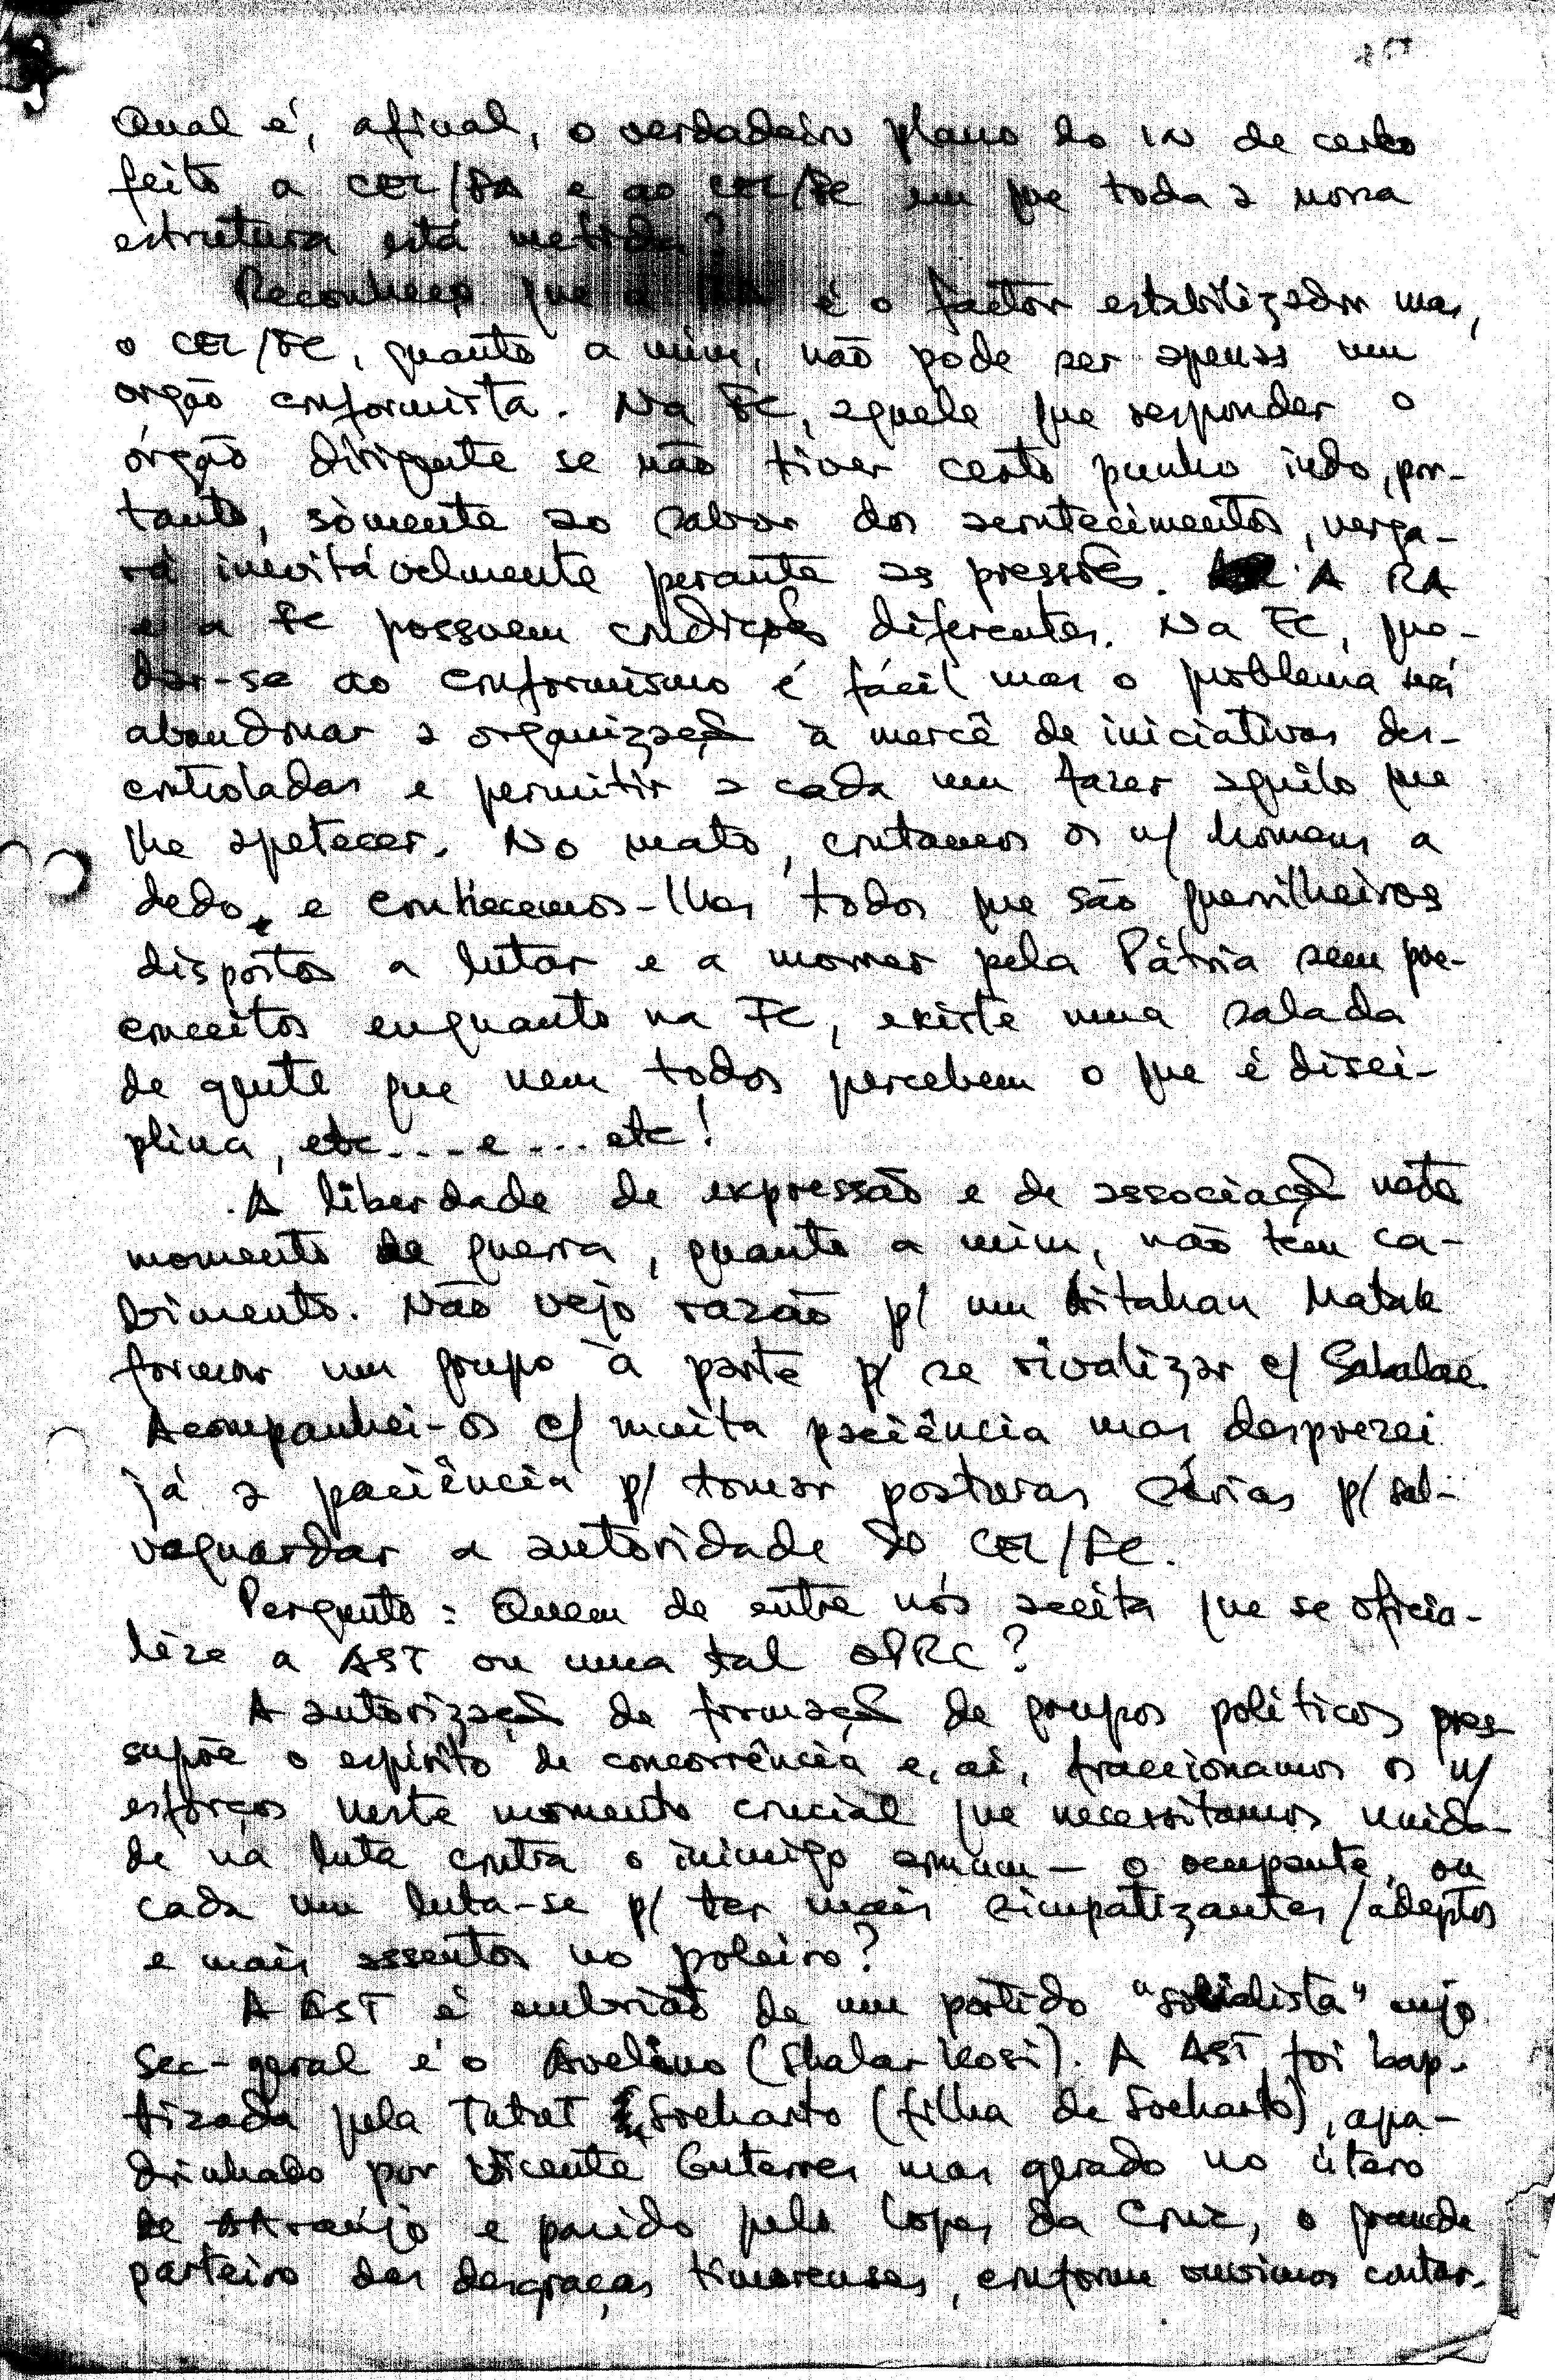 Qual é, afinal, o verdadeiro plano do IN de cerco
feito a CEL/RA e ao CEL/FC em que toda a nossa
estrutura está metida?
Reconheço que a é o factor estabilizador mas,
o CEL/FC, quanto a mim, não pode ser apenas um
orgão conformista. Na FC, aquele que responder o
órgão dirigente se não tiver certo punho indo, por-
tanto, sòmente ao sabor dos acontecimentos, verga-
rá inevitàvelmente perante as pressões. A RA
e a FC possuem condições diferentes. Na FC, que-
dar-se ao conformismo é fácil mas o problema será
abandonar a organização à mercê de iniciativas des-
controladas e permitir a cada um fazer aquilo que
lhe apetecer. No mato, contamos os n/ homens a
dedo, e conhecemos-lhes todos que são guerrilheiros
dispostos a lutar e a morrer pela Pátria sem pre-
conceitos enquanto na FC, existe uma salada
de gente que nem todos percebem o que é disci-
plina, etc... e ... etc!
A liberdade de expressão e de associação neste
momento de guerra, quanto a mim, não tem ca-
bimento. Não vejo razão p/ um Aitahan Matak
formar um grupo à parte p/ se rivalizar c/ Sakalae.
Acompanhei-os c/ muita paciência mas desprezei
já a paciência p/ tomar posturas sérias p/ sal-
vaguardar a autoridade do CEL/FC.
Pergunto: Quem de entre nós aceita que se oficia-
lize a AST ou uma tal OPRC?
A autorização de formação de grupos políticos pres-
supõe o espírito de concorrência e, aí, fraccionamos os n/
esforços neste momento crucial que necessitamos unida-
de na luta contra o inimigo comum - o ocupante, ou
cada um luta-se p/ ter mais simpatizantes/adeptos
e mais assentos no poleiro?
A AST é embrião de um partido "socialista" cujo
Sec-geral é o Avelino (Shalar Kosi). A AST foi bap-
tizada pela Tutut Soeharto (filha de Soeharto), apa-
drinhado por Vicente Guterres mas gerado no útero
de Araújo e parido pelo Lopes da Cruz, o grande
parteiro das desgraças timorenses, conforme ouvimos contar.